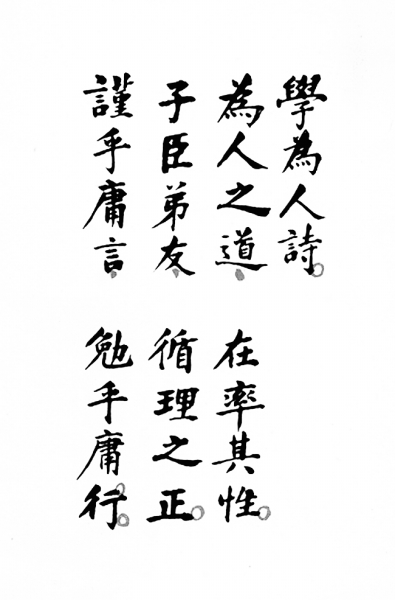 學為人詩
為人之道 在率其性
子臣弟友 循理之正
謹乎庸言 勉乎庸行